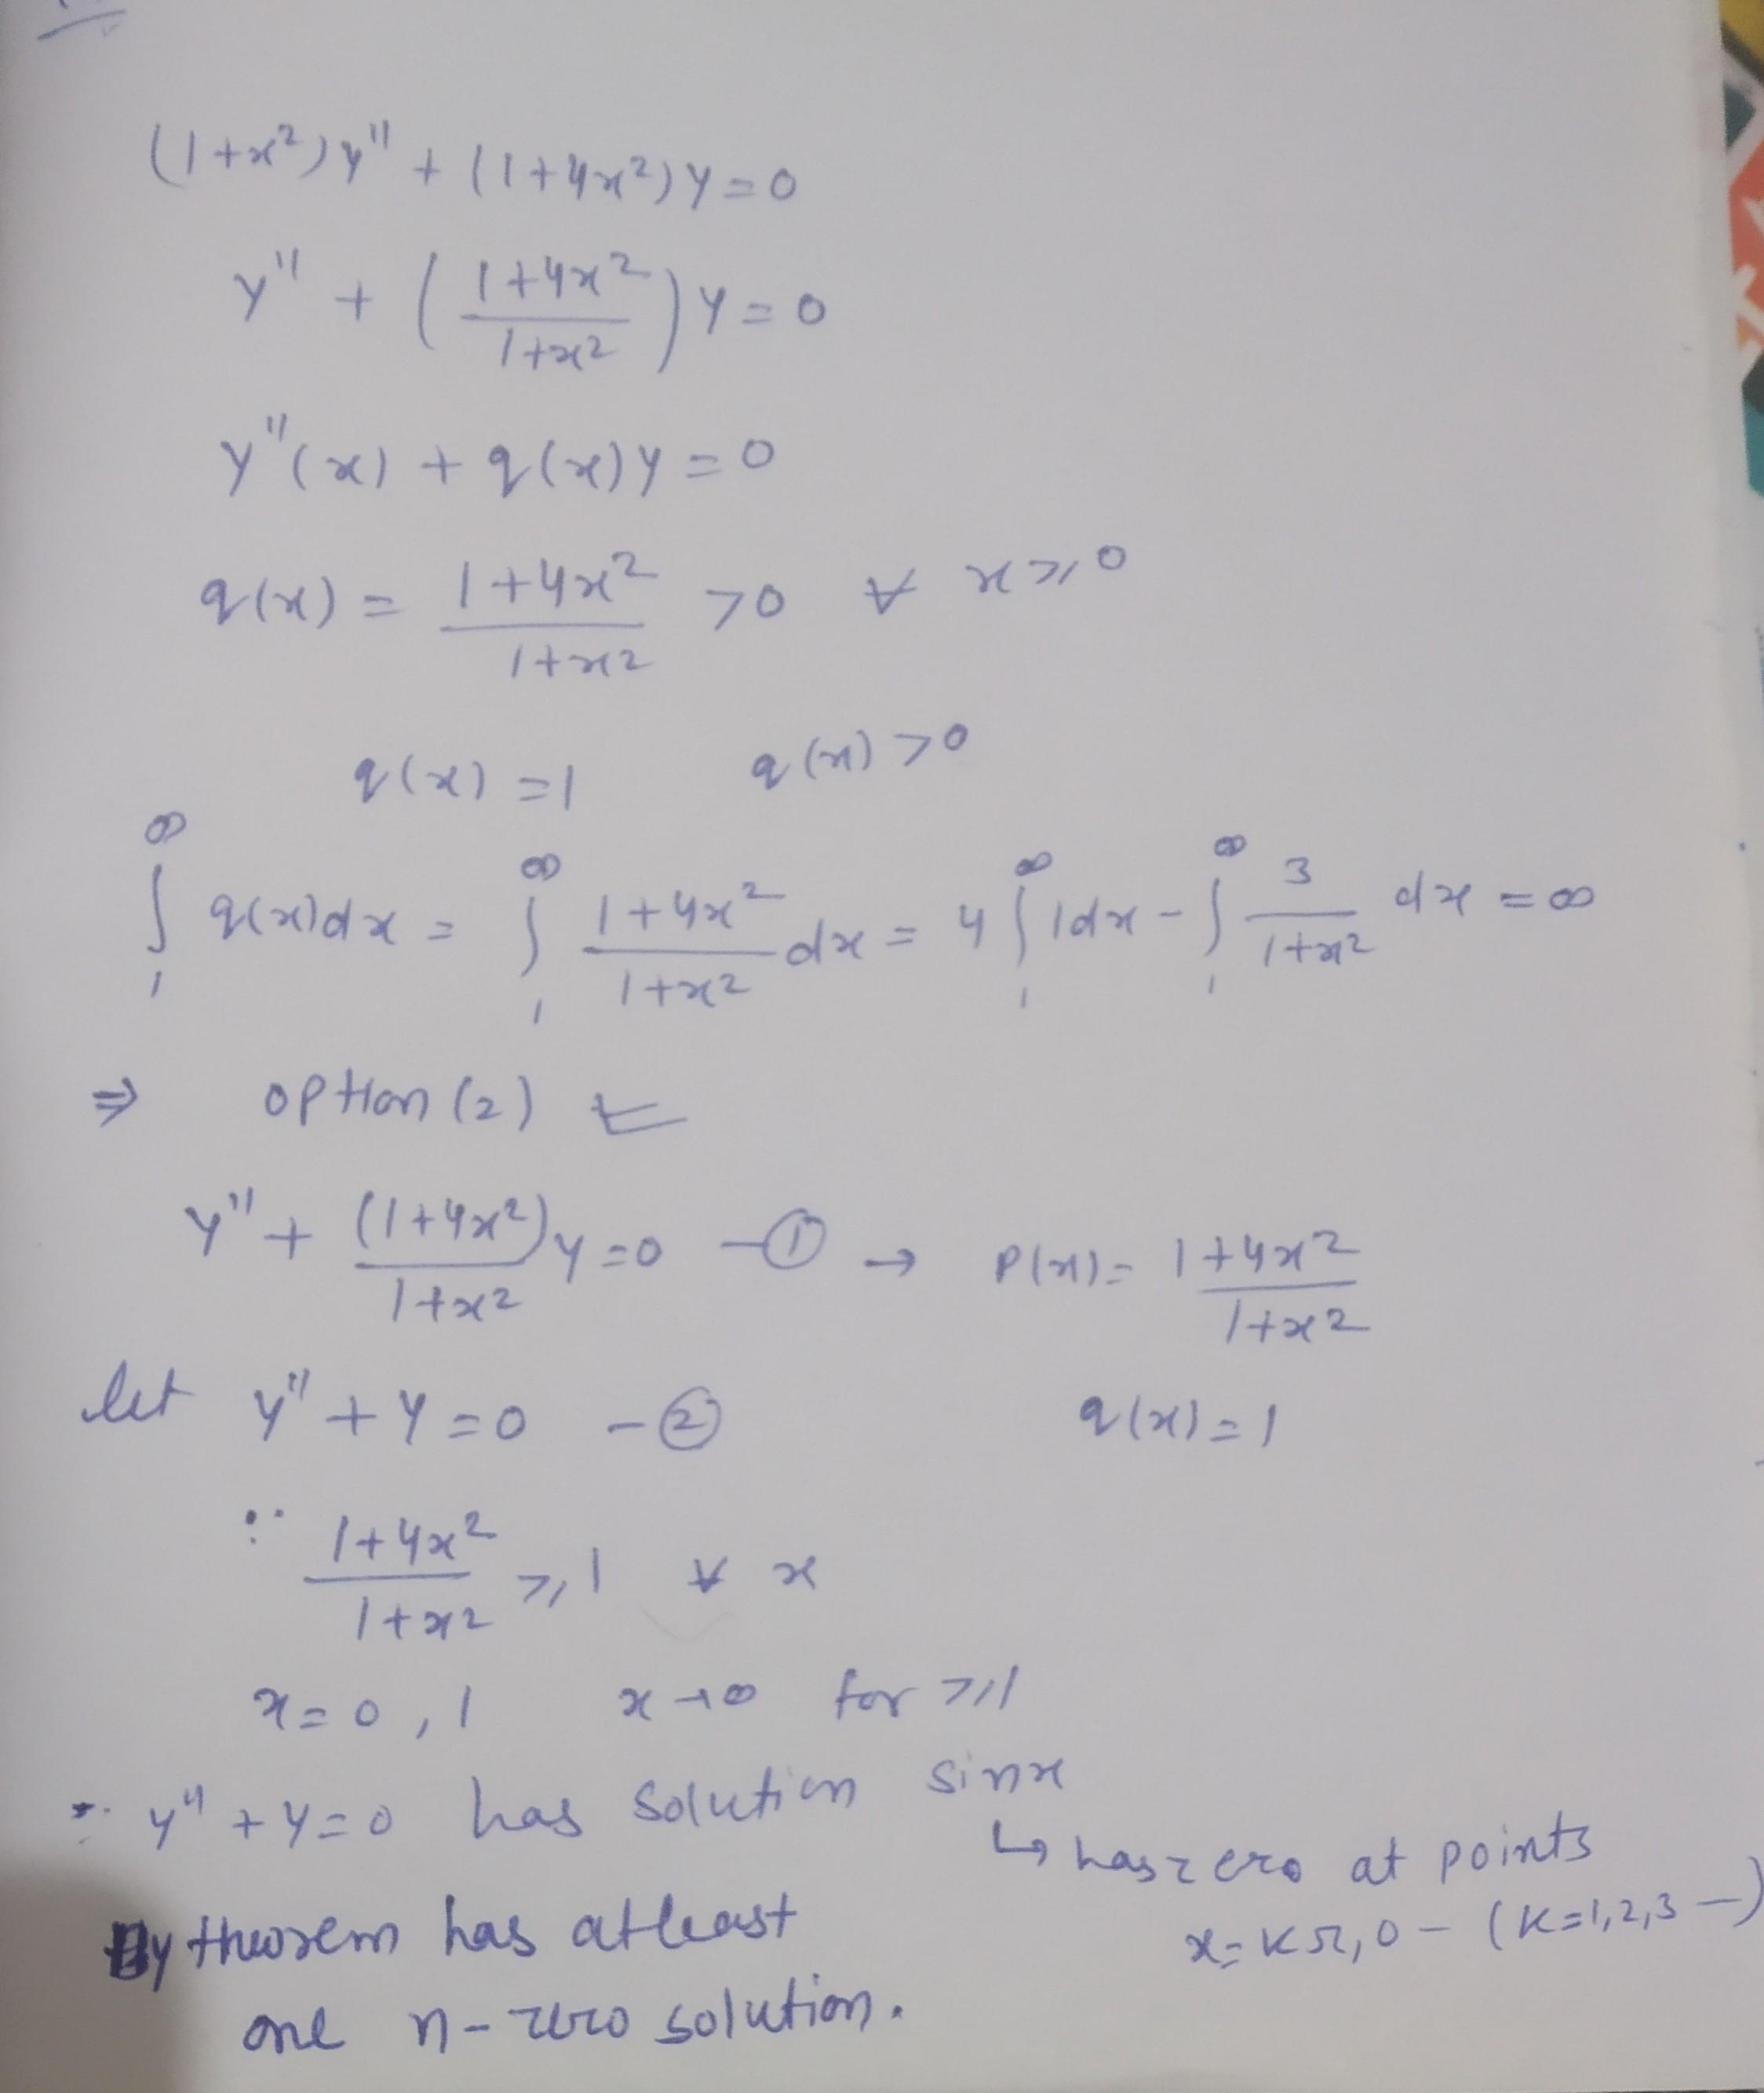 (1+x²)y" + (1+4x²)y=0
y" + ((1+4x²)/(1+x²))y=0
y"(x) + q(x)y=0
q(x) = (1+4x²)/(1+x²) >0 ∀ x≥0
q(x)=1 q(x)>0
∫₁^∞ q(x)dx = ∫₁^∞ (1+4x²)/(1+x²) dx = 4∫₁^∞ 1dx - ∫₁^∞ 3/(1+x²) dx = ∞
⇒ option (2)
y" + (1+4x²)/(1+x²) y=0 -① → P(x)= (1+4x²)/(1+x²)
let y" + y=0 -② q(x)=1
∵ (1+4x²)/(1+x²) ≥1 ∀ x
x=0,1 x→∞ for ≥1
∵ y"+y=0 has solution sinx
↳ has zero at points
x=Kπ,0- (K=1,2,3 —)
By theorem has atleast
one n-zero solution.